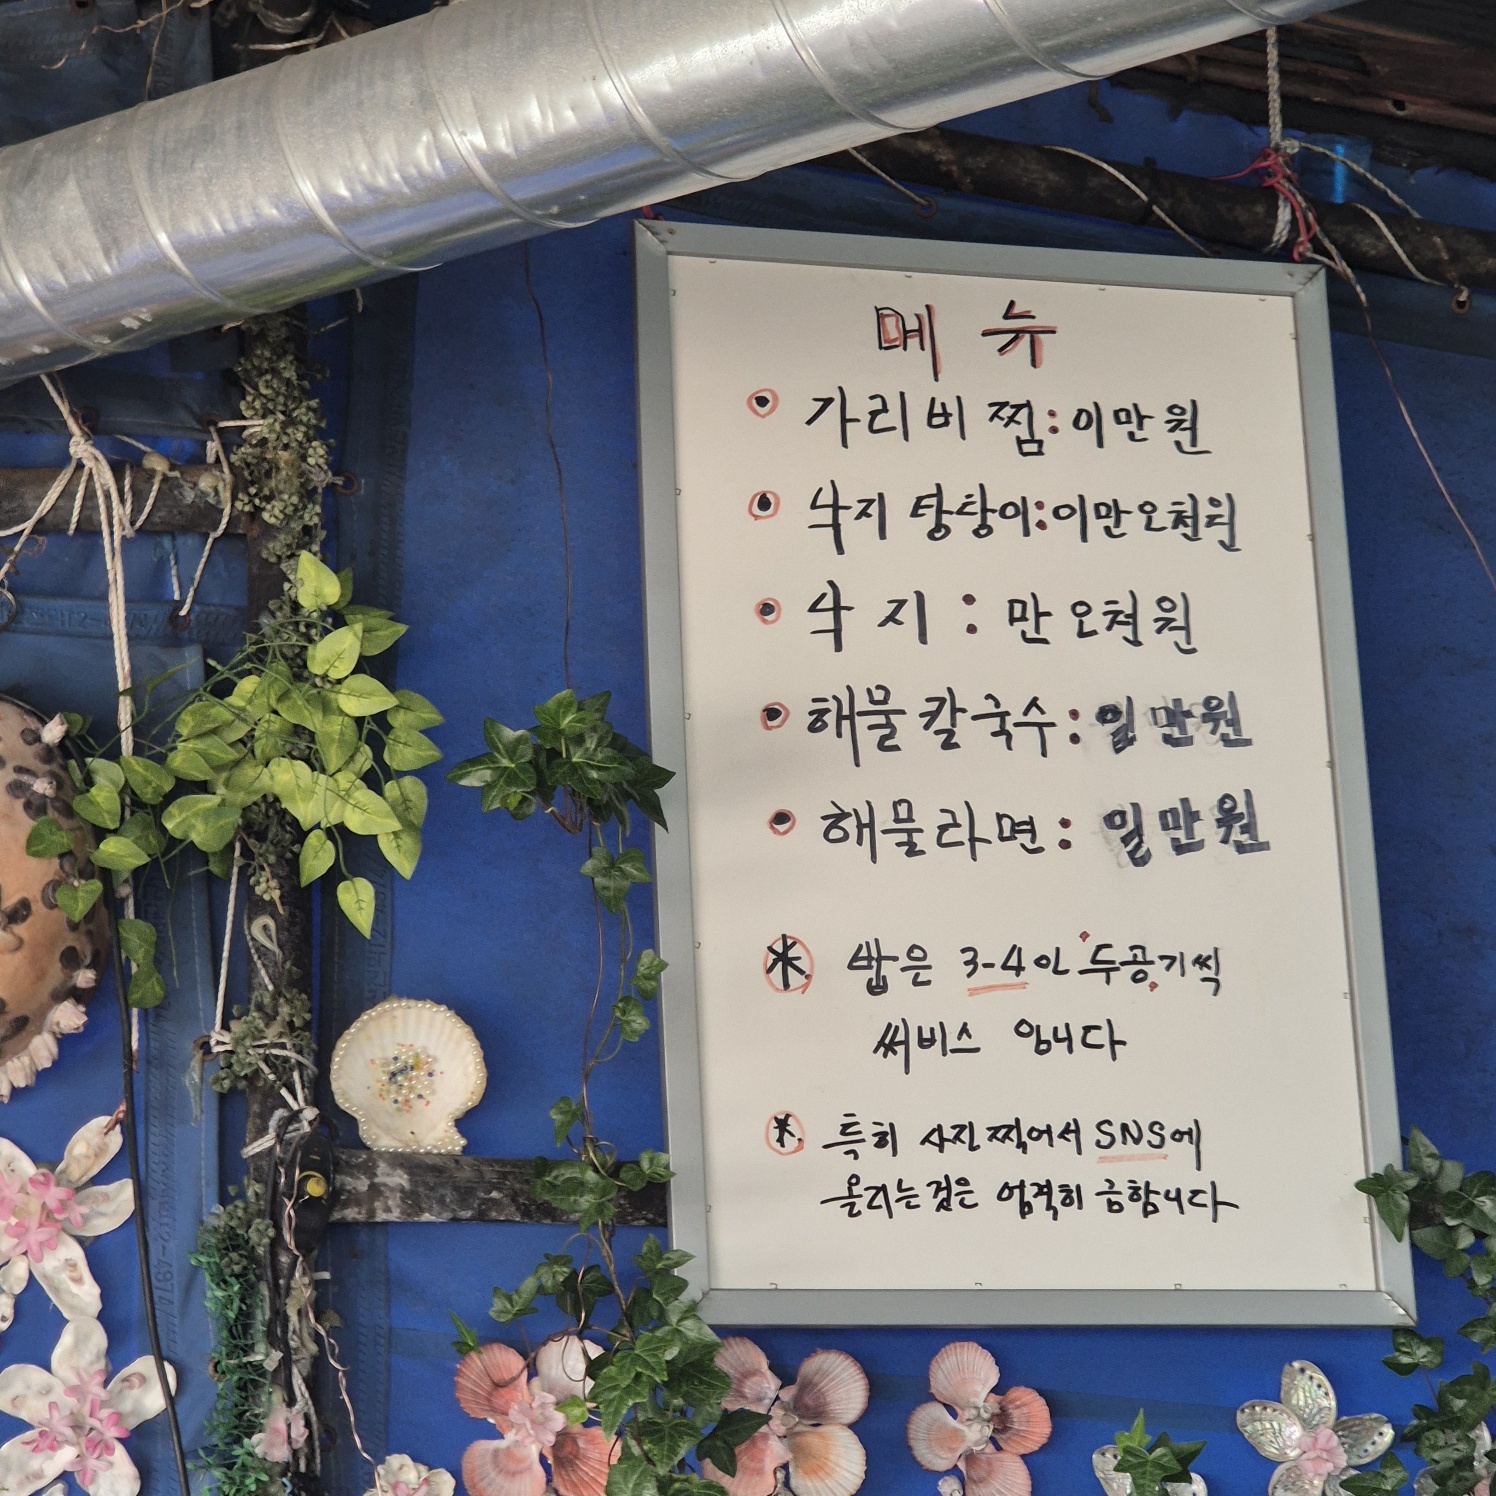 메뉴
가리비 찜 : 이만원
낙지 탕탕이 : 이만오천원
낙지 : 만오천원
해물칼국수 : 일만원
해물라면 : 일만원
* 밥은 3-4인 두공기씩
써비스 입니다
* 특히 사진 찍어서 SNS에
올리는것은 엄격히 금합니다